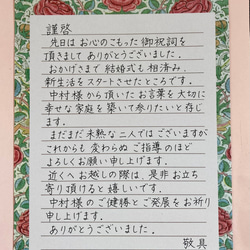 謹啓
先日は お心のこもった 御祝詞を
頂きまして ありがとうございました。
おかげさまで 結婚式も 相済み、
新生活を スタートさせたところです。
中村様から 頂いた お言葉を 大切に
幸せな家庭を 築いて参りたいと存じ
ます。
まだまだ 未熟な二人ではございますが
これからも 変わらぬ ご指導のほど
よろしくお願い申し上げます。
近くへ お越しの際は、是非 お立ち
寄り頂けると 嬉しいです。
中村様の ご健勝と ご発展を お祈り
申し上げます。
ありがとうございました。
敬具